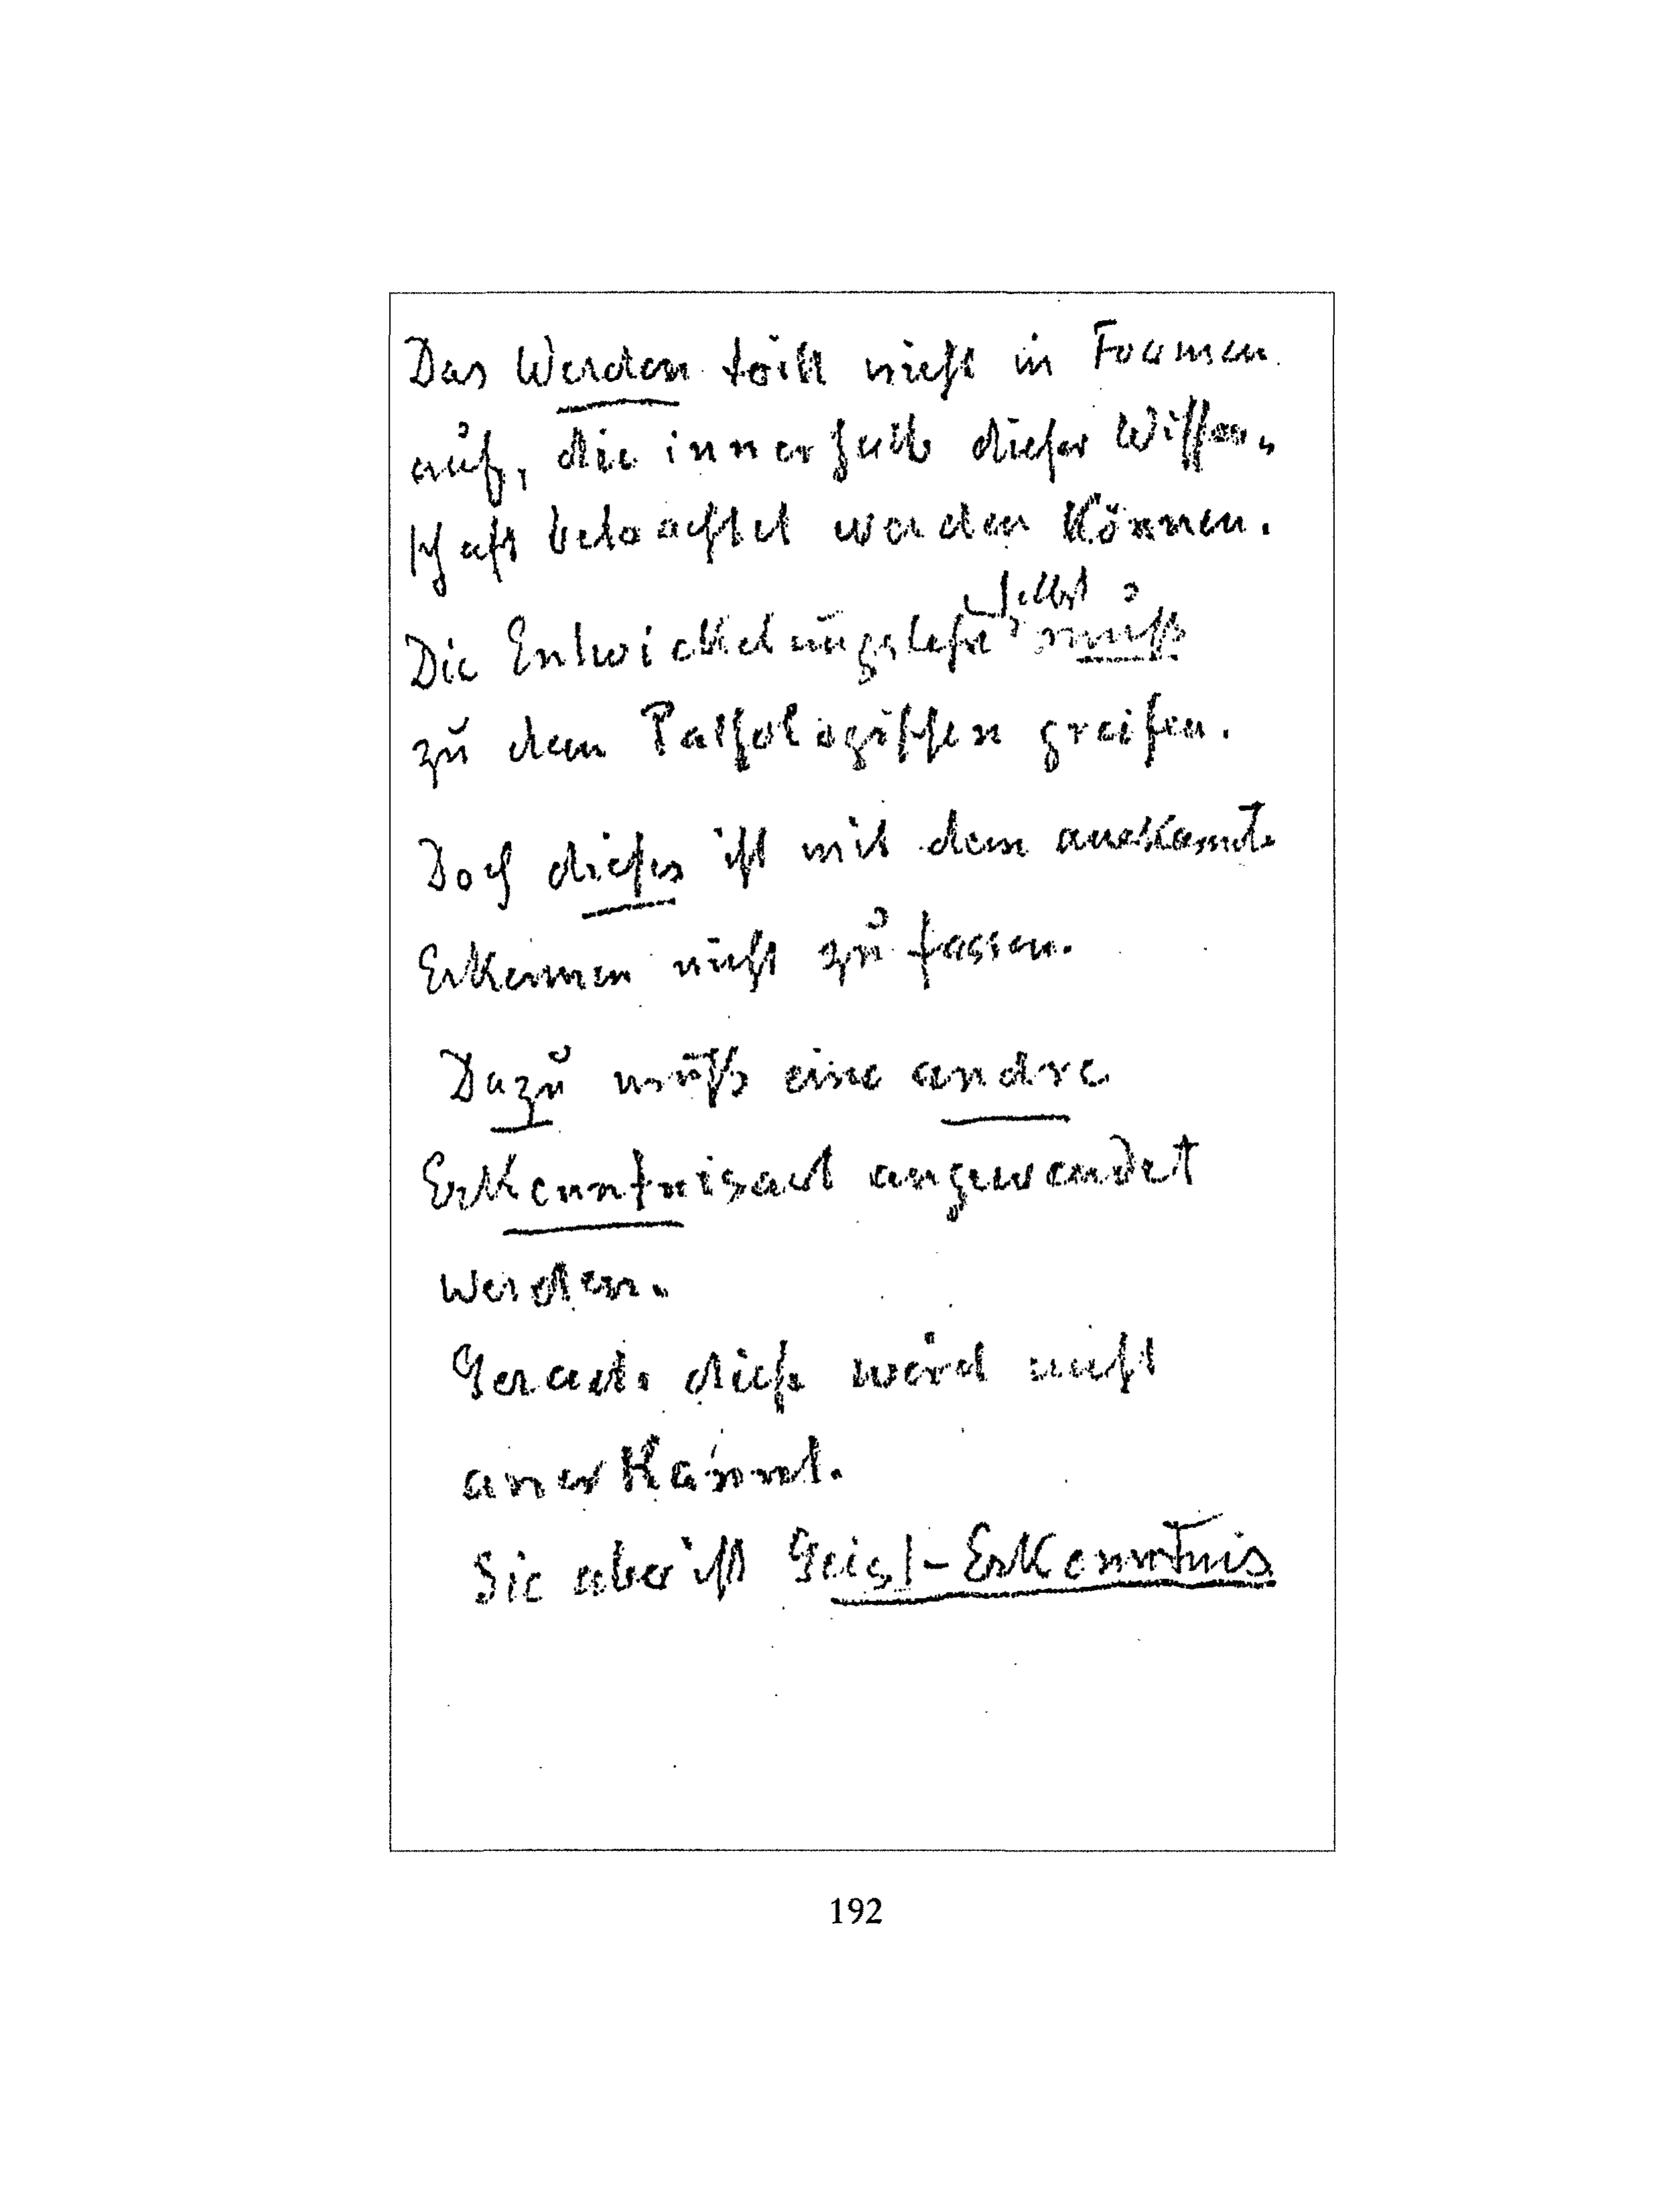 Das Werden tritt nicht in Formen
auf, die innerhalb dieser Wissen-
schaft beobachtet werden können.
selbst
Die Entwickelungslehre muß
zu dem Pathologischen greifen.
Doch dieses ist mit dem anerkannten
Erkennen nicht zu fassen.
Dazu muß eine andre
Erkenntnisart angewendet
werden.
Gerade diese wird nicht
anerkannt.
Sie aber ist Geist-Erkenntnis
192